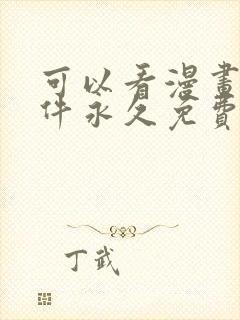 可以看漫畫
件永久免費
丁武